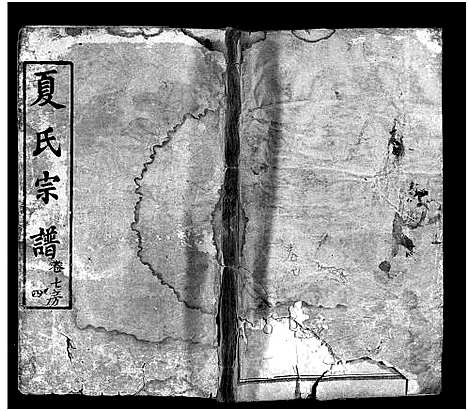 夏氏宗譜
卷七
四房
卷七